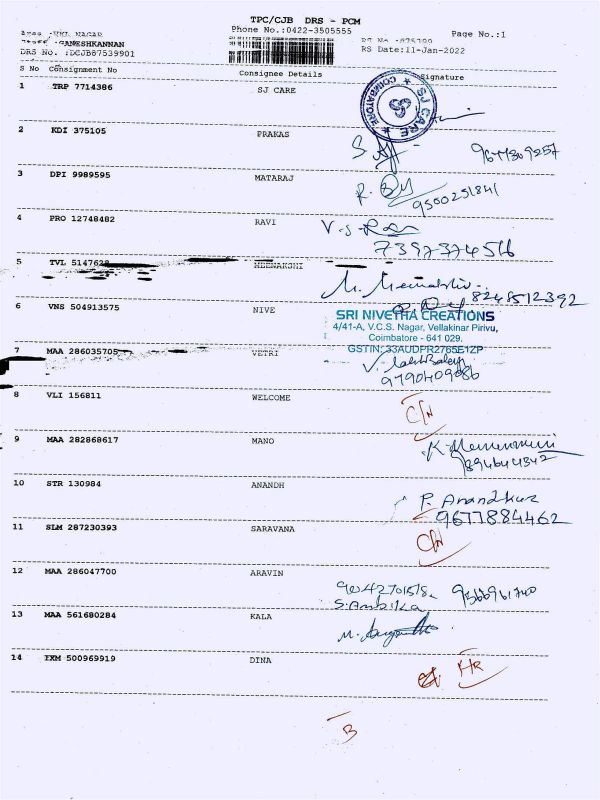 TPC/CJB DRS - PCM
Phone No.:0422-3505555
Page No.:1
Area :VKL NAGAR
Staff :GANESHKANNAN
DRS No. :DCJB87539901
RS Date:11-Jan-2022
S No Consignment No Consignee Details Signature
1 TRP 7714386 SJ CARE
SJ CARE
COIMBATORE
2 KDI 375105 PRAKAS
9677309257
3 DPI 9989595 MATARAJ
9500251841
4 PRO 12748482 RAVI
V.S. Ravi
7397374516
5 TVL 5147628 MEENAKSHI
M. Meenakshi
8248512392
6 VNS 504913575 NIVE
SRI NIVETHA CREATIONS
4/41-A, V.C.S. Nagar, Vellakinar Pirivu,
Coimbatore - 641 029.
GSTIN: 33AUDPR2765E1ZP
7 MAA 286035705 VETRI
9790409086
8 VLI 156811 WELCOME
9 MAA 282868617 MANO
9894644342
10 STR 130984 ANANDH
P. Anandkur
9677884462
11 SLM 287230393 SARAVANA
12 MAA 286047700 ARAVIN
S. Ambika
13 MAA 561680284 KALA
14 IXM 500969919 DINA
HR
B